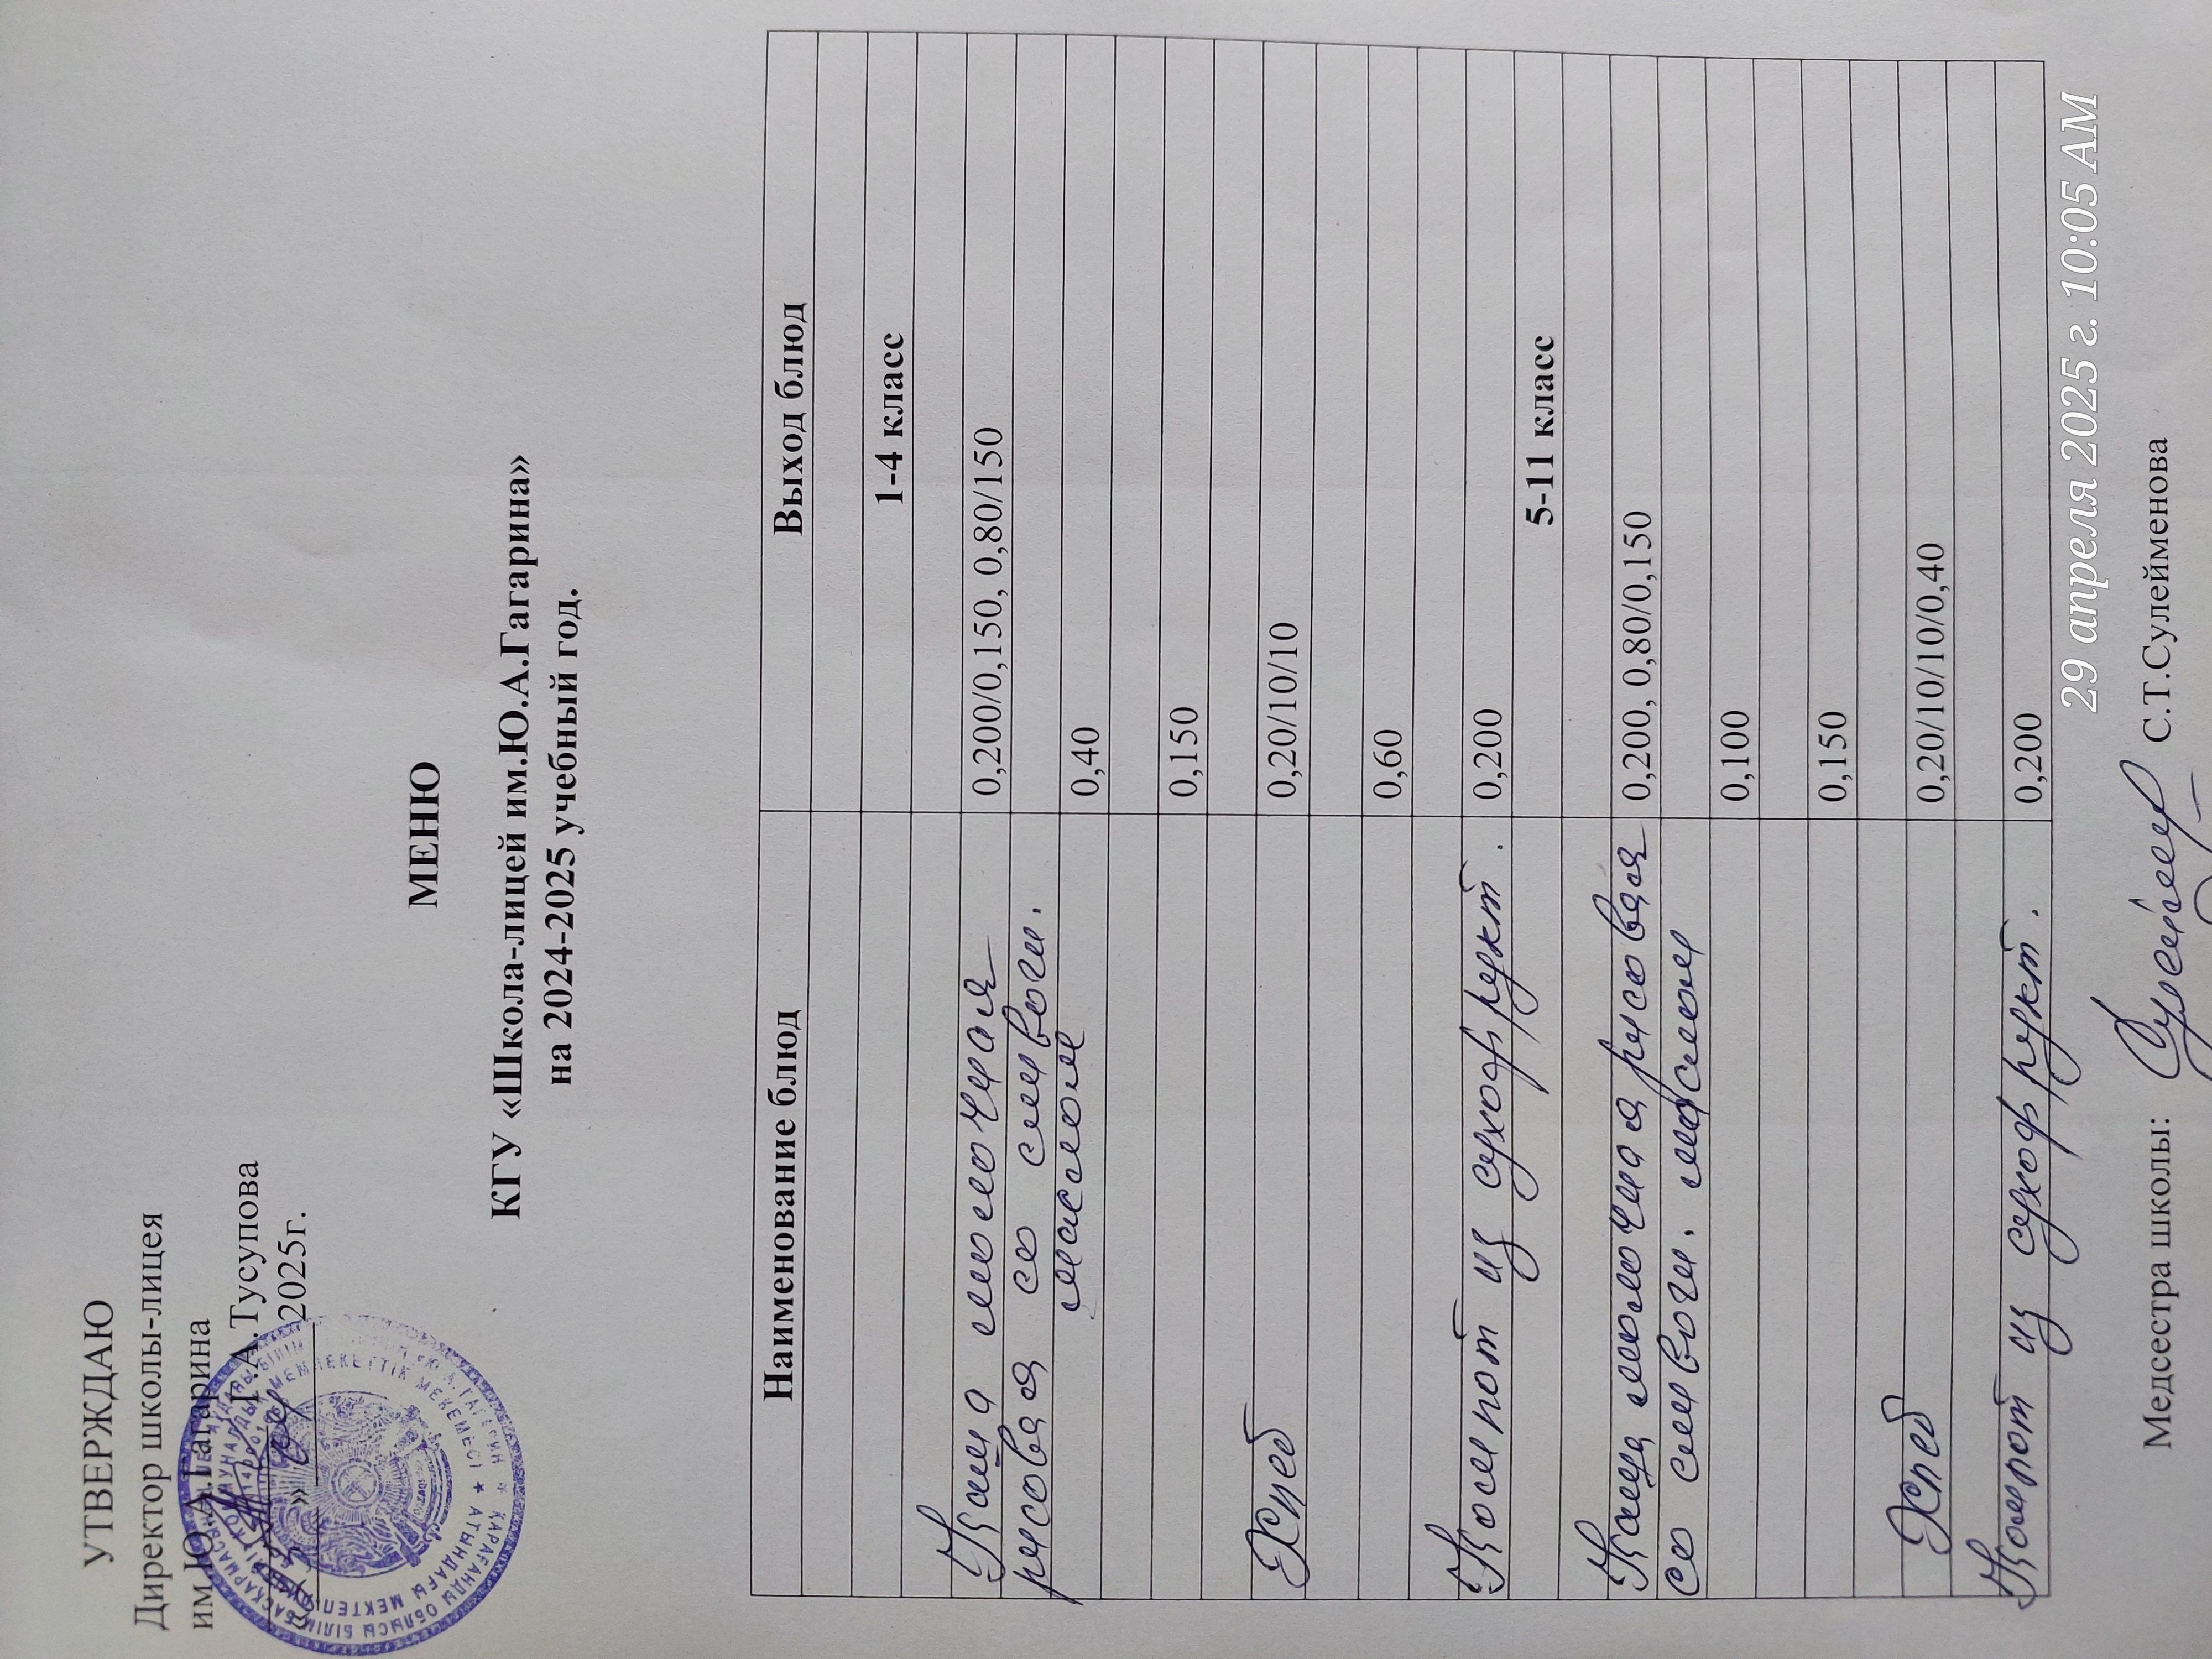 УТВЕРЖДАЮ
Директор школы-лицея
им.Ю.А.Гагарина
Г.А.Тусупова
» 2025г.
МЕНЮ
КГУ «Школа-лицей им.Ю.А.Гагарина»
на 2024-2025 учебный год.
Наименование блюд Выход блюд
1-4 класс
Каша молочная 0,200/0,150, 0,80/150
рисовая со сливочн.
маслом 0,40
0,150
Хлеб 0,20/10/10
0,60
Компот из сухофрукт. 0,200
5-11 класс
Каша молочная рисовая 0,200, 0,80/0,150
со сливочн. маслом
0,100
0,150
Хлеб 0,20/10/10/0,40
Компот из сухофрукт. 0,200
29 апреля 2025 г. 10:05 AM
Медсестра школы: С.Т.Сулейменова